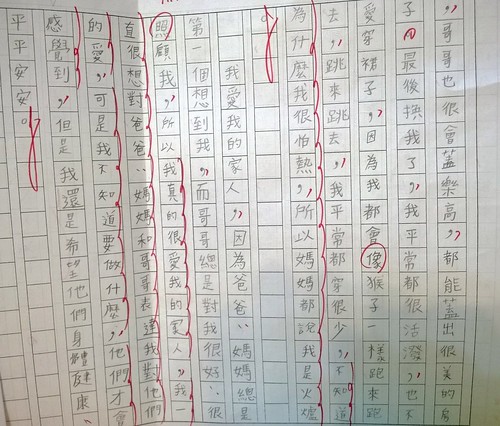 哥哥也很會蓋樂高,都能蓋出很美的房
子,最後換了我,平常都很活潑,也不
愛穿裙子,因為我,都會像猴子一樣跑來跑
去,跳來跳去,我平常都穿很少,不知道
為什麼我很怕熱,所以媽媽都說我是火爐
。
我愛我的家人,因為爸爸、媽媽總是
第一個想到我,而哥哥總是對我很好、很
照顧我,所以我真的很愛我的家人,我一
直很想對爸爸、媽媽和哥哥表達我對他們
的愛,可是我不知道要做什麼,他們才會
感覺到,但是我還是希望他們身體健康、
平平安安。